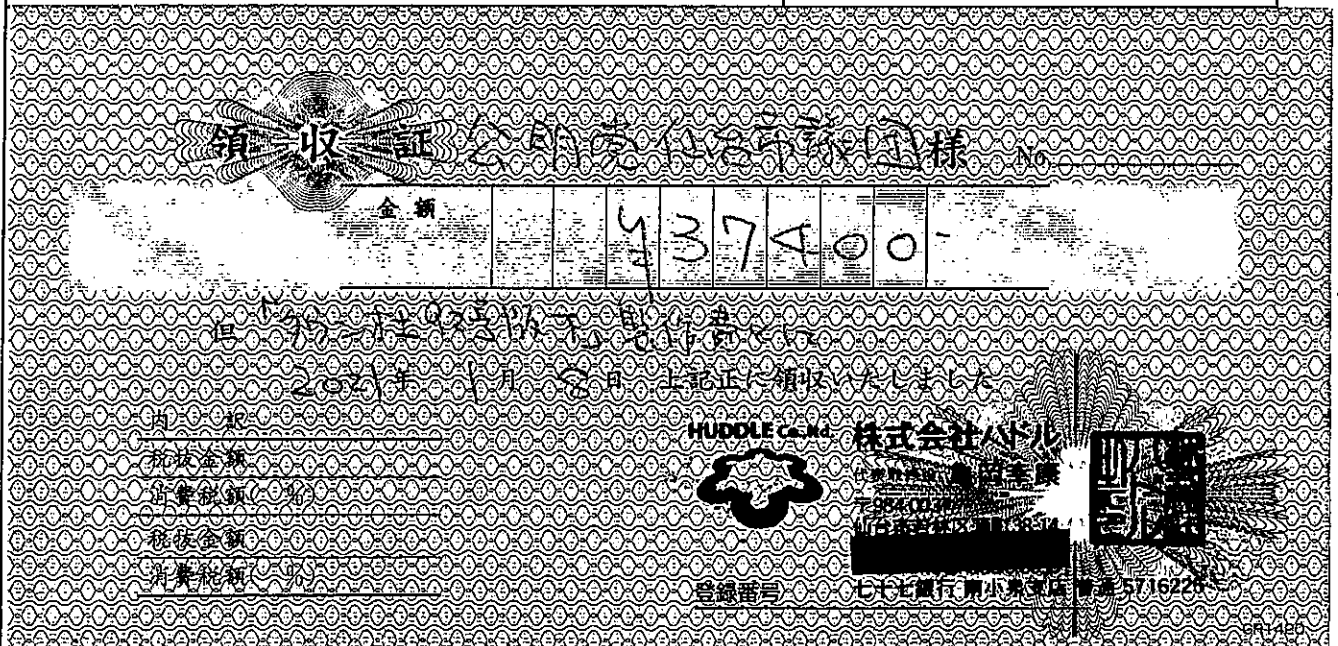 領収証 公明党仙台市議団様 No.
金額 ¥37400-
2021年 1月 8日 上記正に領収いたしました
内訳
税抜金額
消費税額( %)
税抜金額
消費税額( %)
HUDDLE Co.,ltd.
株式会社ハドル
代表取締役 亀岡幸康
仙台市若林区
登録番号
七十七銀行 南小泉支店 普通 5716226